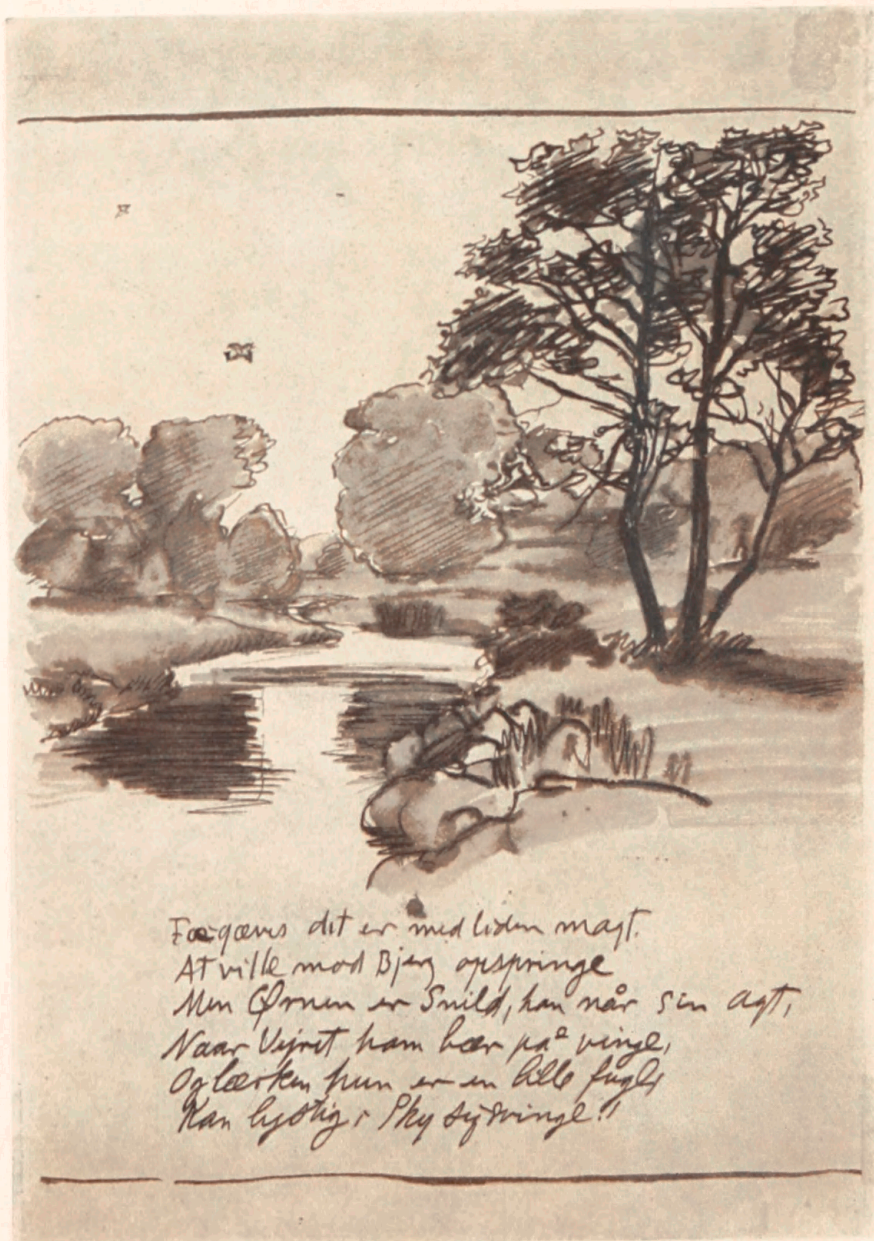 Fægæves dit er med liden magt.
At ville mod Bjerg opspringe
Men Ørnen er Snild, han når sin Agt,
Naar Vejret ham bær på vinge,
Og lærken hun er en lille fugl,
Kan lystig i Sky sig svinge!!